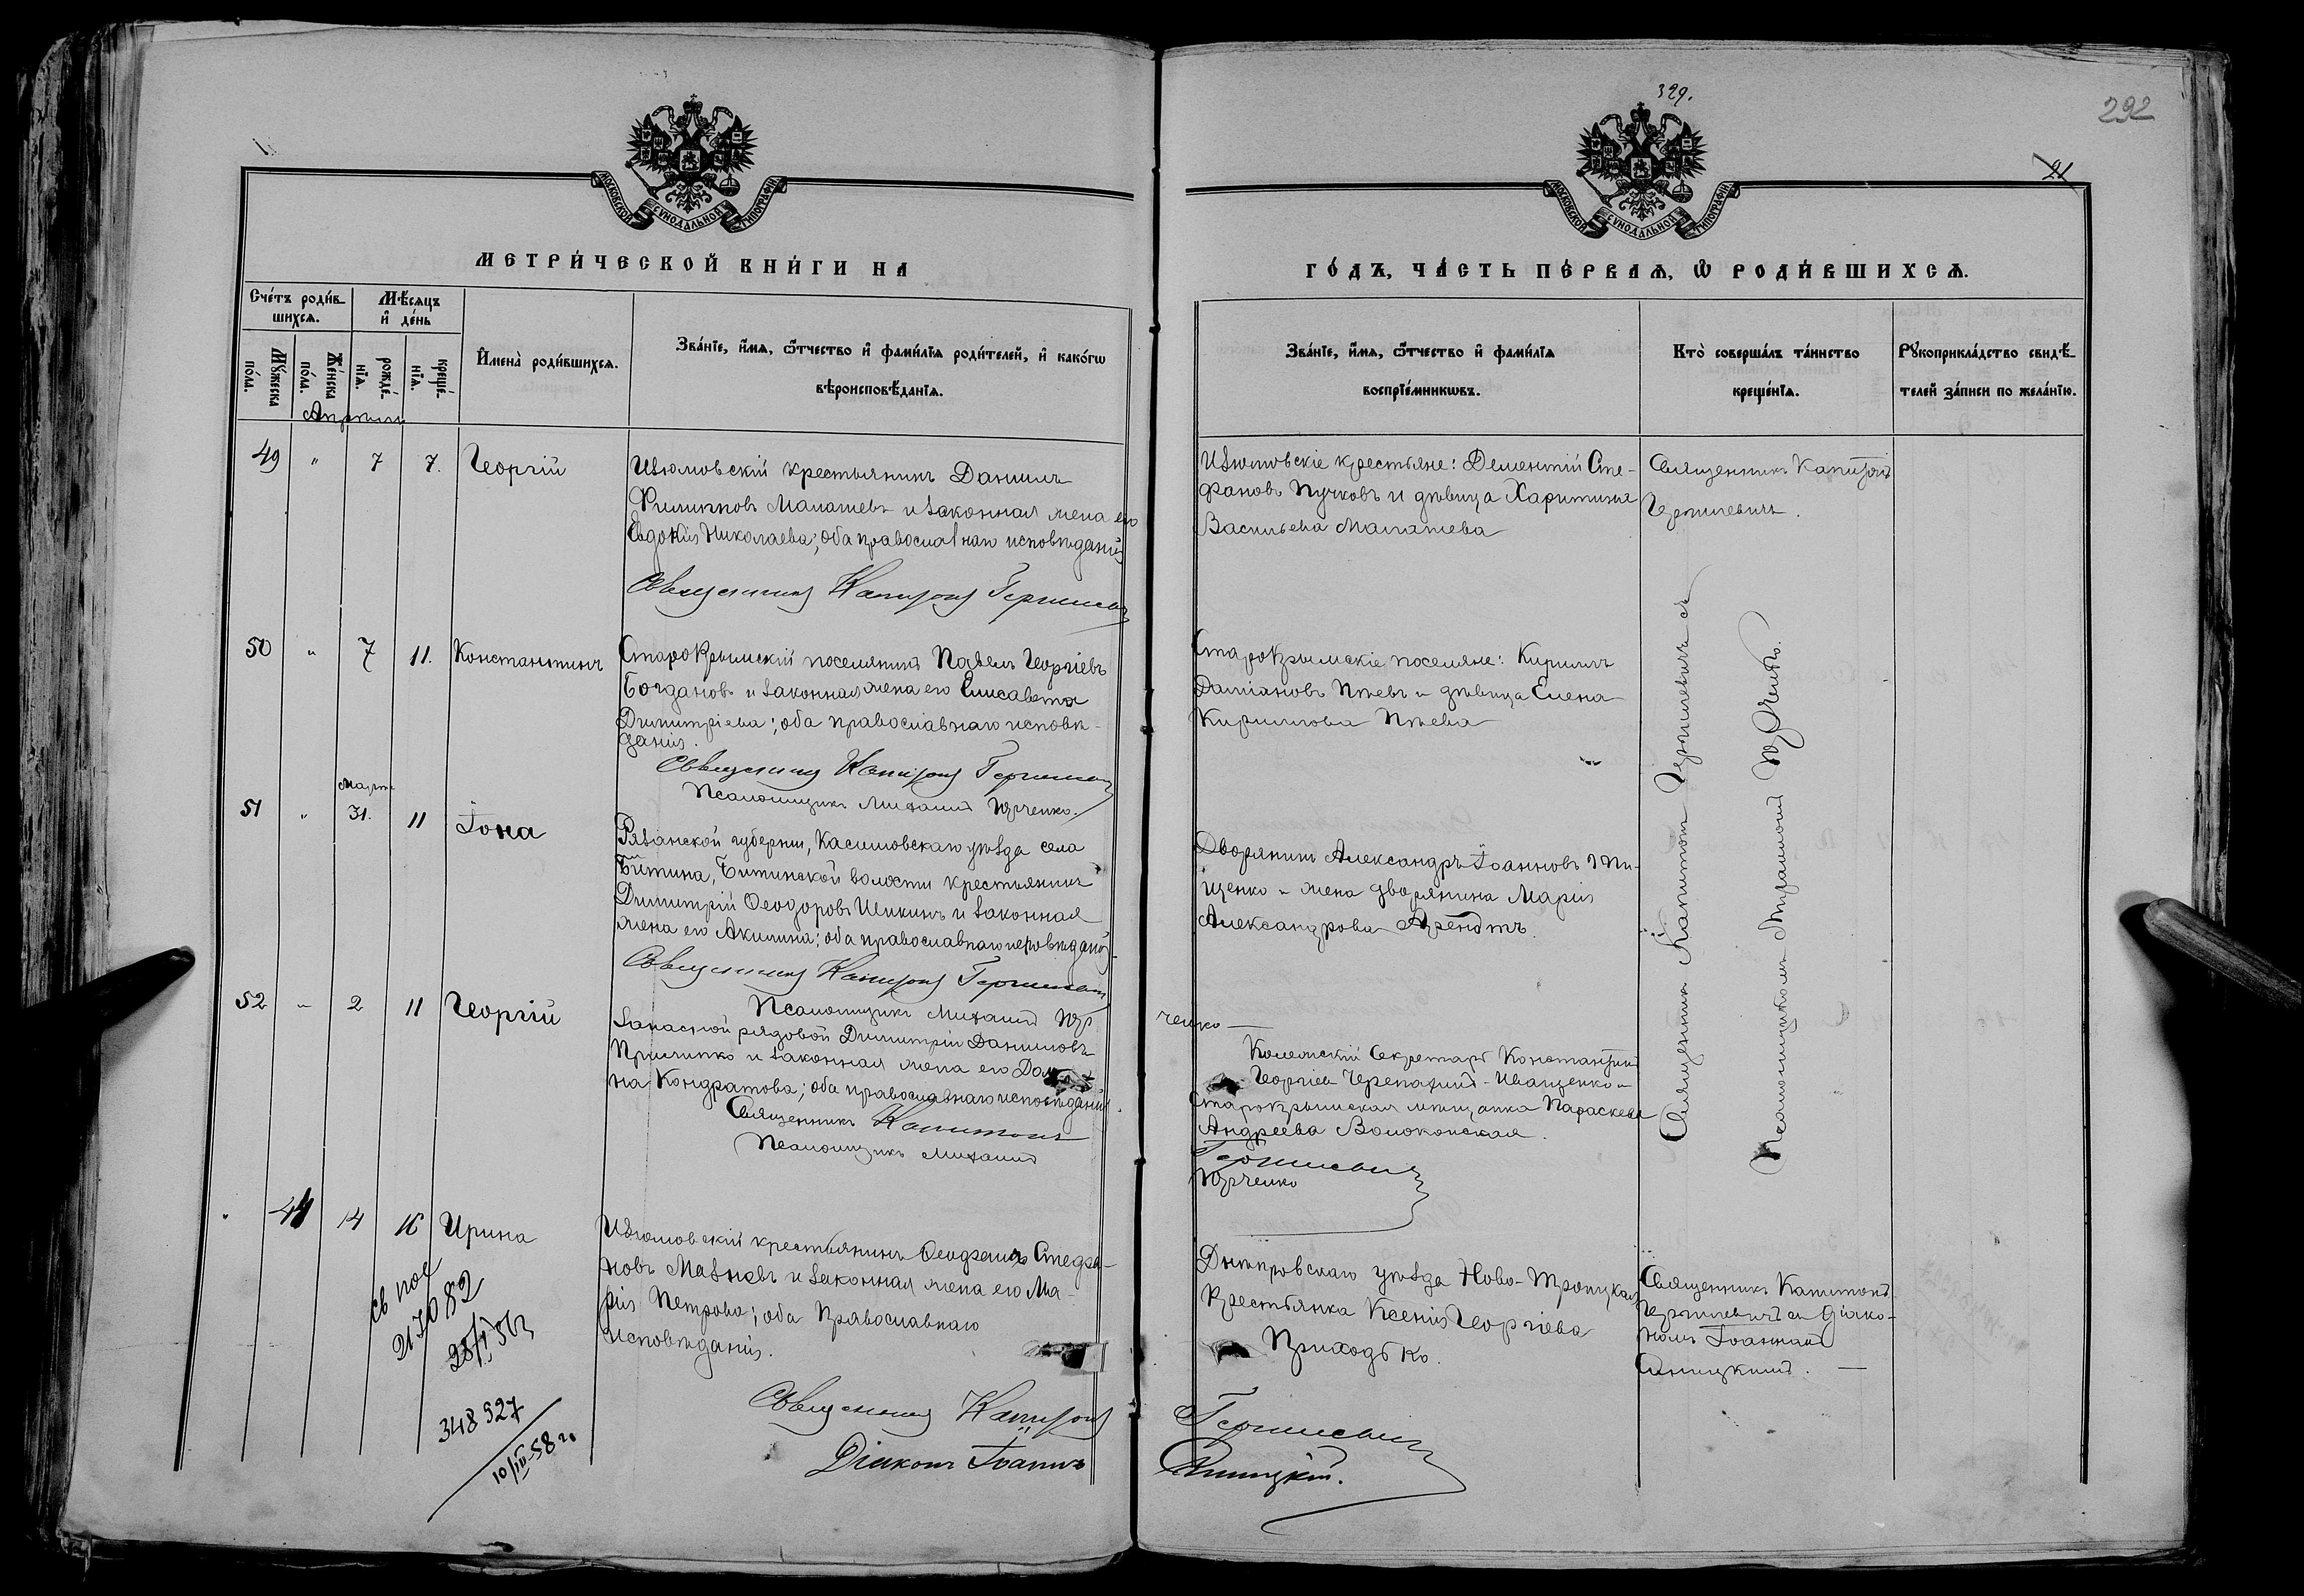 329.
292
21
МОСКОВСКОЙ СѴНОДАЛЬНОЙ ТИПОГРАФІИ
МОСКОВСКОЙ СѴНОДАЛЬНОЙ ТИПОГРАФІИ
МЕТРИ́ЧЕСКОЙ КНИ́ГИ НА
ГО́ДЪ, ЧА́СТЬ ПЕ́РВАѦ, Ѡ҆ РОДИ́ВШИХСѦ.
Сче́тъ роди́в-
шихсѧ.
Мѣ́сѧцъ
и҆ де́нь
Мꙋ́жеска
по́ла.
Же́нска
по́ла.
рожде́-
нїѧ.
креще́-
нїѧ.
И҆мена̀ роди́вшихсѧ.
Зва́нїе, и҆́мѧ, ѻ҆́тчество и҆ фами́лїѧ роди́телей, и҆ како́гѡ
вѣроисповѣ́данїѧ.
Зва́нїе, и҆́мѧ, ѻ҆́тчество и҆ фами́лїѧ
воспрїе́мникѡвъ.
Кто̀ соверша́лъ та́инство
креще́нїѧ.
Рꙋкоприкла́дство свидѣ́-
телей за́писи по жела́нїю.
Апрѣль
49 " 7 7. Георгій
Изюмовскій крестьянинъ Даніилъ
Филипповъ Малашевъ и законная жена его
Евдокія Николаева; оба православнаго исповѣданія
Священникъ Капитонъ Гергилевичъ
Изюмовскіе крестьяне: Дементій Сте-
фановъ Пучковъ и дѣвица Харитина
Васильева Малашева
Священникъ Капитонъ
Гергилевичъ.
50 " 7 11. Константинъ
Старокрымскій поселянинъ Павелъ Георгіевъ
Богдановъ и законная жена его Елисавета
Димитріева; оба православнаго исповѣ-
данія.
Священникъ Капитонъ Гергилевичъ
Псаломщикъ Михаилъ Юрченко.
Старокрымскіе поселяне: Кириллъ
Даміановъ и дѣвица Елена
Кириллова
Марта
51 " 31. 11 Іона
Рязанской губерніи, Касимовскаго уѣзда села
Битина, Битинской волости крестьянинъ
Димитрій Ѳеодоровъ Шикинъ и законная
жена его Акилина; оба православнаго исповѣданія
Священникъ Капитонъ Гергилевичъ
Псаломщикъ Михаилъ Юр
ченко
Дворянинъ Александръ Іоанновъ
щенко и жена дворянина Марія
Александрова Арендтъ.
Священникъ Капитонъ Гергилевичъ съ
Псаломщикомъ Михаиломъ Юрченко.
52 " 2 11 Георгій
Запасной рядовой Димитрій Даниловъ
Прилипко и законная жена его Дом
на Кондратова; оба православнаго исповѣданія.
Священникъ Капитонъ
Псаломщикъ Михаилъ
Колежскій Секретарь Константинъ
Георгіевъ Черепахинъ-Иващенко и
Старокрымская мѣщанка Параскева
Андреева Волоконская.
Гергилевичъ
Юрченко
" 44 14 16 Ирина
Изюмовскій крестьянинъ Стефа-
новъ Мазневъ и законная жена его Ма-
рія Петрова; оба Православнаго
исповѣданія.
Священникъ Капитонъ
Діаконъ Іоаннъ
Днѣпровскаго уѣзда Ново-Троицкая
крестьянка Ксенія Георгіева
Приходько.
Гергилевичъ
Синицкій.
Священникъ Капитонъ
Гергилевичъ съ діако-
номъ Іоанномъ
Синицкимъ.
св пос
217082
348527
10/III-58 г.